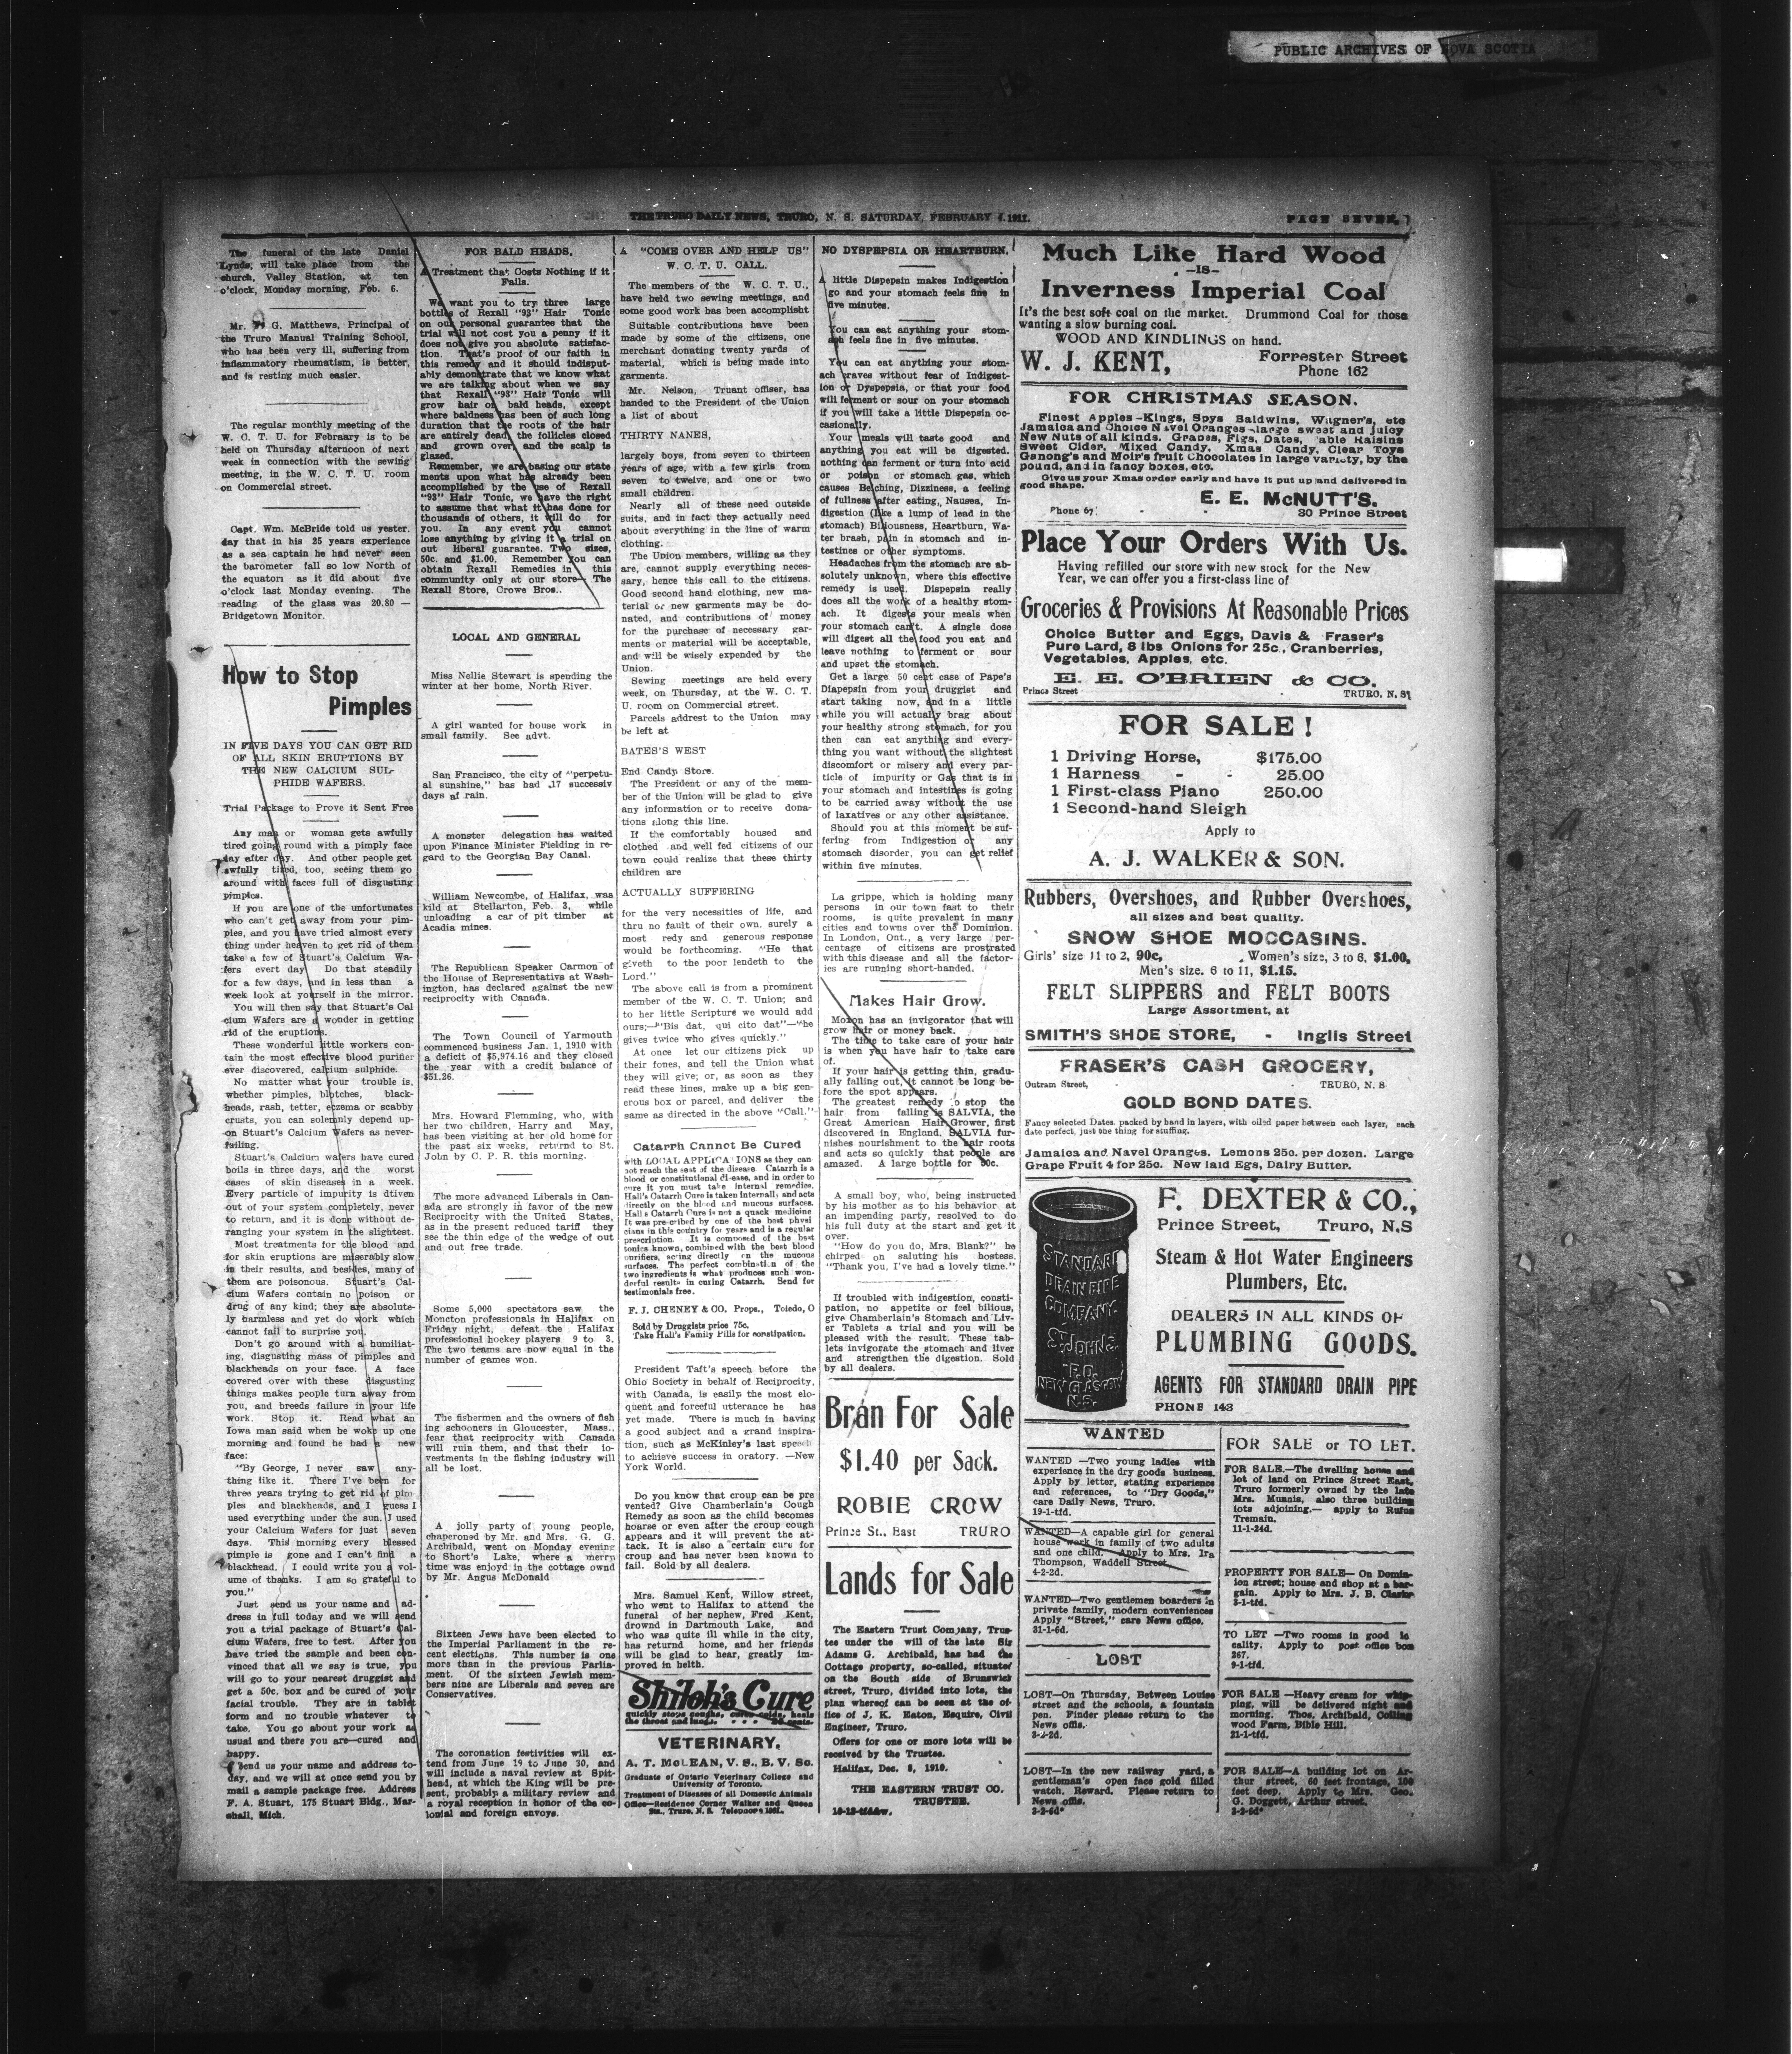 PUBLIC ARCHIVES OF NOVA SCOTIA
THE TRURO DAILY NEWS, TRURO, N. S. SATURDAY, FEBRUARY 4, 1911.
PAGE SEVEN.
The funeral of the late Daniel
Lynds, will take place from the
church, Valley Station, at ten
o'clock, Monday morning, Feb. 6.
Mr. G. Matthews, Principal of
the Truro Manual Training School,
who has been very ill, suffering from
inflammatory rheumatism, is better,
and is resting much easier.
The regular monthly meeting of the
W. C. T. U. for February is to be
held on Thursday afternoon of next
week in connection with the sewing
meeting, in the W. C. T. U. room
on Commercial street.
Capt. Wm. McBride told us yester.
day that in his 25 years experience
as a sea captain he had never seen
the barometer fall so low North of
the equator as it did about five
o'clock last Monday evening. The
reading of the glass was 20.80 —
Bridgetown Monitor.
How to Stop
Pimples
IN FIVE DAYS YOU CAN GET RID
OF ALL SKIN ERUPTIONS BY
THE NEW CALCIUM SUL-
PHIDE WAFERS.
Trial Package to Prove it Sent Free
Any man or woman gets awfully
tired going round with a pimply face
day after day. And other people get
awfully tired, too, seeing them go
around with faces full of disgusting
pimples.
If you are one of the unfortunates
who can't get away from your pim-
ples, and you have tried almost every
thing under heaven to get rid of them
take a few of Stuart's Calcium Wa-
fers evert day Do that steadily
for a few days, and in less than a
week look at yourself in the mirror.
You will then say that Stuart's Cal
cium Wafers are a wonder in getting
rid of the eruptions.
These wonderful little workers con-
tain the most effective blood purifier
ever discovered, calcium sulphide.
No matter what your trouble is,
whether pimples, blotches, black-
heads, rash, tetter, eczema or scabby
crusts, you can solemnly depend up-
on Stuart's Calcium Wafers as never-
failing.
Stuart's Calcium wafers have cured
boils in three days, and the worst
cases of skin diseases in a week.
Every particle of impurity is dtiven
out of your system completely, never
to return, and it is done without de-
ranging your system in the slightest.
Most treatments for the blood and
for skin eruptions are miserably slow
in their results, and besides, many of
them are poisonous. Stuart's Cal-
cium Wafers contain no poison or
drug of any kind; they are absolute-
ly harmless and yet do work which
cannot fail to surprise you.
Don't go around with a humiliat-
ing, disgusting mass of pimples and
blackheads on your face. A face
covered over with these disgusting
things makes people turn away from
you, and breeds failure in your life
work. Stop it. Read what an
Iowa man said when he woke up one
morning and found he had a new
face:
"By George, I never saw any-
thing like it. There I've been for
three years trying to get rid of pim
ples and blackheads, and I guess I
used everything under the sun. I used
your Calcium Wafers for just seven
days. This morning every blessed
pimple is gone and I can't find a
blackhead. I could write you a vol-
ume of thanks. I am so grateful to
you."
Just send us your name and ad-
dress in full today and we will send
you a trial package of Stuart's Cal-
cium Wafers, free to test. After you
have tried the sample and been con-
vinced that all we say is true, you
will go to your nearest druggist and
get a 50c. box and be cured of your
facial trouble. They are in tablet
form and no trouble whatever to
take. You go about your work as
usual and there you are—cured and
happy.
Send us your name and address to-
day, and we will at once send you by
mail a sample package free. Address
F. A. Stuart, 175 Stuart Bldg., Mar-
shall, Mich.
FOR BALD HEADS.
A Treatment that Costs Nothing if it
Fails.
We want you to try three large
bottles of Rexall "93" Hair Tonic
on our personal guarantee that the
trial will not cost you a penny if it
does not give you absolute satisfac-
tion. That's proof of our faith in
this remedy and it should indisput-
ably demonstrate that we know what
we are talking about when we say
that Rexall "93" Hair Tonic will
grow hair on bald heads, except
where baldness has been of such long
duration that the roots of the hair
are entirely dead, the follicles closed
and grown over, and the scalp is
glazed.
Remember, we are basing our state
ments upon what has already been
accomplished by the use of Rexall
"93" Hair Tonic, we have the right
to assume that what it has done for
thousands of others, it will do for
you. In any event you cannot
lose anything by giving it a trial on
out liberal guarantee. Two sizes,
50c. and $1.00. Remember you can
obtain Rexall Remedies in this
community only at our store— The
Rexall Store, Crowe Bros..
LOCAL AND GENERAL
Miss Nellie Stewart is spending the
winter at her home, North River.
A girl wanted for house work in
small family. See advt.
San Francisco, the city of "perpetu-
al sunshine," has had 17 successiv
days af rain.
A monster delegation has waited
upon Finance Minister Fielding in re-
gard to the Georgian Bay Canal.
William Newcombe, of Halifax, was
kild at Stellarton, Feb. 3, while
unloading a car of pit timber at
Acadia mines.
The Republican Speaker Carmon of
the House of Representativs at Wash-
ington, has declared against the new
reciprocity with Canada.
The Town Council of Yarmouth
commenced business Jan. 1, 1910 with
a deficit of $5,974.16 and they closed
the year with a credit balance of
$51.26.
Mrs. Howard Flemming, who, with
her two children, Harry and May,
has been visiting at her old home for
the past six weeks, returnd to St.
John by C. P. R. this morning.
The more advanced Liberals in Can-
ada are strongly in favor of the new
Reciprocity with the United States,
as in the present reduced tariff they
see the thin edge of the wedge of out
and out free trade.
Some 5,000 spectators saw the
Moncton professionals in Halifax on
Friday night, defeat the Halifax
professional hockey players 9 to 3.
The two teams are now equal in the
number of games won.
The fishermen and the owners of fish
ing schooners in Gloucester, Mass.,
fear that reciprocity with Canada
will ruin them, and that their io-
vestments in the fishing industry will
all be lost.
A jolly party of young people,
chaperoned by Mr. and Mrs. G. G.
Archibald, went on Monday evening
to Short's Lake, where a merry
time was enjoyd in the cottage ownd
by Mr. Angus McDonald
Sixteen Jews have been elected to
the Imperial Parliament in the re-
cent elections. This number is one
more than in the previous Parlia-
ment. Of the sixteen Jewish mem-
bers nine are Liberals and seven are
Conservatives.
The coronation festivities will ex-
tend from June 19 to June 30, and
will include a naval review at Spit-
head, at which the King will be pre-
sent, probably a military review and
a royal reception in honor of the co-
lonial and foreign envoys.
A "COME OVER AND HELP US"
W. C. T. U. CALL.
The members of the W. C. T. U.,
have held two sewing meetings, and
some good work has been accomplisht
Suitable contributions have been
made by some of the citizens, one
merchant donating twenty yards of
material, which is being made into
garments.
Mr. Nelson, Truant offiser, has
handed to the President of the Union
a list of about
THIRTY NANES,
largely boys, from seven to thirteen
years of age, with a few girls from
seven to twelve, and one or two
small children.
Nearly all of these need outside
suits, and in fact they actually need
about everything in the line of warm
clothing.
The Union members, willing as they
are, cannot supply everything neces-
sary, hence this call to the citizens.
Good second hand clothing, new ma-
terial or new garments may be do-
nated, and contributions of money
for the purchase of necessary gar-
ments or material will be acceptable,
and will be wisely expended by the
Union.
Sewing meetings are held every
week, on Thursday, at the W. C. T.
U. room on Commercial street.
Parcels addrest to the Union may
be left at
BATES'S WEST
End Candy Store.
The President or any of the mem-
ber of the Union will be glad to give
any information or to receive dona-
tions along this line.
If the comfortably housed and
clothed and well fed citizens of our
town could realize that these thirty
children are
ACTUALLY SUFFERING
for the very necessities of life, and
thru no fault of their own. surely a
most redy and generous response
would be forthcoming. "He that
giveth to the poor lendeth to the
Lord."
The above call is from a prominent
member of the W. C. T. Union; and
to her little Scripture we would add
ours;—"Bis dat, qui cito dat"—"he
gives twice who gives quickly."
At once let our citizens pick up
their fones, and tell the Union what
they will give; or, as soon as they
read these lines, make up a big gen-
erous box or parcel, and deliver the
same as directed in the above "Call."
Catarrh Cannot Be Cured
with LOCAL APPLICATIONS as they can
not reach the seat of the disease Catarrh is a
blood or constitutional disease, and in order to
cure it you must take internal remedies.
Hall's Catarrh Cure is taken internally and acts
directly on the blood and mucous surfaces.
Hall's Catarrh Cure is not a quack medicine
It was prescribed by one of the best physi
cians in this country for years and is a regular
prescription. It is composed of the best
tonics known, combined with the best blood
purifiers, acting directly on the mucous
surfaces. The perfect combination of the
two ingredients is what produces such won-
derful results in curing Catarrh. Send for
testimonials free.
F. J. CHENEY & CO. Props., Toledo, O
Sold by Druggists price 75c.
Take Hall's Family Pills for constipation.
President Taft's speech before the
Ohio Society in behalf of Reciprocity,
with Canada, is easily the most elo-
quent and forceful utterance he has
yet made. There is much in having
a good subject and a grand inspira-
tion, such as McKinley's last speech
to achieve success in oratory. —New
York World.
Do you know that croup can be pre
vented? Give Chamberlain's Cough
Remedy as soon as the child becomes
hoarse or even after the croup cough
appears and it will prevent the at-
tack. It is also a certain cure for
croup and has never been known to
fail. Sold by all dealers.
Mrs. Samuel Kent, Willow street,
who went to Halifax to attend the
funeral of her nephew, Fred Kent,
drownd in Dartmouth Lake, and
who was quite ill while in the city,
has returnd home, and her friends
will be glad to hear, greatly im-
proved in helth.
Shiloh's Cure
quickly stops coughs, cures colds, heals
the throat and lungs. . . . 25 cents.
VETERINARY.
A. T. McLEAN, V. S., B. V. Sc.
Graduate of Ontario Veterinary College and
University of Toronto.
Treatment of Diseases of all Domestic Animals
Office—Residence Corner Walker and Queen
Sts., Truro, N. S.
NO DYSPEPSIA OR HEARTBURN.
A little Dispepsin makes Indigestion
go and your stomach feels fine in
five minutes.
You can eat anything your stom-
ach feels fine in five minutes.
You can eat anything your stom-
ach craves without fear of Indigest-
ion or Dyspepsia, or that your food
will ferment or sour on your stomach
if you will take a little Dispepsin oc-
casionally.
Your meals will taste good and
anything you eat will be digested.
nothing can ferment or turn into acid
or poison or stomach gas, which
causes Belching, Dizziness, a feeling
of fullness after eating, Nausea, In-
digestion (like a lump of lead in the
stomach) Biliousness, Heartburn, Wa-
ter brash, pain in stomach and in-
testines or other symptoms.
Headaches from the stomach are ab-
solutely unknown, where this effective
remedy is used. Dispepsin really
does all the work of a healthy stom-
ach. It digests your meals when
your stomach can't. A single dose
will digest all the food you eat and
leave nothing to ferment or sour
and upset the stomach.
Get a large 50 cent case of Pape's
Diapepsin from your druggist and
start taking now, and in a little
while you will actually brag about
your healthy strong stomach, for you
then can eat anything and every-
thing you want without the slightest
discomfort or misery and every par-
ticle of impurity or Gas that is in
your stomach and intestines is going
to be carried away without the use
of laxatives or any other assistance.
Should you at this moment be suf-
fering from Indigestion or any
stomach disorder, you can get relief
within five minutes.
La grippe, which is holding many
persons in our town fast to their
rooms, is quite prevalent in many
cities and towns over the Dominion.
In London, Ont., a very large per-
centage of citizens are prostrated
with this disease and all the factor-
ies are running short-handed.
Makes Hair Grow.
Moxon has an invigorator that will
grow hair or money back.
The time to take care of your hair
is when you have hair to take care
of.
If your hair is getting thin, gradu-
ally falling out, it cannot be long be-
fore the spot appears.
The greatest remedy to stop the
hair from falling is SALVIA, the
Great American Hair Grower, first
discovered in England. SALVIA fur-
nishes nourishment to the hair roots
and acts so quickly that people are
amazed. A large bottle for 50c.
A small boy, who, being instructed
by his mother as to his behavior at
an impending party, resolved to do
his full duty at the start and get it
over.
"How do you do, Mrs. Blank?" he
chirped on saluting his hostess.
"Thank you, I've had a lovely time."
If troubled with indigestion, consti-
pation, no appetite or feel bilious,
give Chamberlain's Stomach and Liv-
er Tablets a trial and you will be
pleased with the result. These tab-
lets invigorate the stomach and liver
and strengthen the digestion. Sold
by all dealers.
Bran For Sale
$1.40 per Sack.
ROBIE CROW
Prince St., East TRURO
Lands for Sale
The Eastern Trust Company, Trus-
tee under the will of the late Sir
Adams G. Archibald, has had the
Cottage property, so-called, situated
on the South side of Brunswick
street, Truro, divided into lots, the
plan whereof can be seen at the of-
fice of J. K. Eaton, Esquire, Civil
Engineer, Truro.
Offers for one or more lots will be
received by the Trustee.
Halifax, Dec. 8, 1910.
THE EASTERN TRUST CO.
TRUSTEE.
Much Like Hard Wood
—IS—
Inverness Imperial Coal
It's the best soft coal on the market. Drummond Coal for those
wanting a slow burning coal.
WOOD AND KINDLINGS on hand.
W. J. KENT, Forrester Street
Phone 162
FOR CHRISTMAS SEASON.
Finest Apples-Kings, Spys Baldwins, Wagner's, etc
Jamaica and Choice Navel Oranges-large sweet and juicy
New Nuts of all kinds. Grapes, Figs, Dates, Table Raisins
Sweet Cider. Mixed Candy, Xmas Candy, Clear Toys
Ganong's and Moir's fruit Chocolates in large variety, by the
pound, and in fancy boxes, etc.
Give us your Xmas order early and have it put up and delivered in
good shape.
E. E. McNUTT'S.
Phone 67 - - 30 Prince Street
Place Your Orders With Us.
Having refilled our store with new stock for the New
Year, we can offer you a first-class line of
Groceries & Provisions At Reasonable Prices
Choice Butter and Eggs, Davis & Fraser's
Pure Lard, 8 lbs Onions for 25c., Cranberries,
Vegetables, Apples, etc.
E. E. O'BRIEN & CO.
Prince Street TRURO, N. S.
FOR SALE!
1 Driving Horse, $175.00
1 Harness - - 25.00
1 First-class Piano 250.00
1 Second-hand Sleigh
Apply to
A. J. WALKER & SON.
Rubbers, Overshoes, and Rubber Overshoes,
all sizes and best quality.
SNOW SHOE MOCCASINS.
Girls' size 11 to 2, 90c, Women's size, 3 to 6, $1.00,
Men's size. 6 to 11, $1.15.
FELT SLIPPERS and FELT BOOTS
Large Assortment, at
SMITH'S SHOE STORE, - Inglis Street
FRASER'S CASH GROCERY,
Outram Street, TRURO, N. S.
GOLD BOND DATES.
Fancy selected Dates. packed by hand in layers, with oiled paper between each layer, each
date perfect, just the thing for stuffing.
Jamaica and Navel Oranges. Lemons 25c. per dozen. Large
Grape Fruit 4 for 25c. New laid Egs, Dairy Butter.
STANDARD
DRAIN PIPE
COMPANY
ST. JOHNS
P.Q.
NEW GLASGOW
N.S.
F. DEXTER & CO.,
Prince Street, Truro, N.S
Steam & Hot Water Engineers
Plumbers, Etc.
DEALERS IN ALL KINDS OF
PLUMBING GOODS.
AGENTS FOR STANDARD DRAIN PIPE
PHONE 143
WANTED
WANTED —Two young ladies with
experience in the dry goods business.
Apply by letter, stating experience
and references, to "Dry Goods,"
care Daily News, Truro.
19-1-tfd.
WANTED—A capable girl for general
house work in family of two adults
and one child. Apply to Mrs. Ira
Thompson, Waddell Street.
4-2-2d.
WANTED—Two gentlemen boarders in
private family, modern conveniences
Apply "Street," care News office.
31-1-6d.
LOST
LOST—On Thursday, Between Louise
street and the schools, a fountain
pen. Finder please return to the
News offis.
3-2-2d.
LOST—In the new railway yard, a
gentleman's open face gold filled
watch. Reward. Please return to
News offis.
3-2-6d*
FOR SALE or TO LET.
FOR SALE.—The dwelling house and
lot of land on Prince Street East,
Truro formerly owned by the late
Mrs. Munnis, also three building
lots adjoining.— apply to Rufus
Tremain.
11-1-24d.
PROPERTY FOR SALE— On Domin-
ion street; house and shop at a bar-
gain. Apply to Mrs. J. B. Clarke
3-1-tfd.
TO LET —Two rooms in good lo
cality. Apply to post office box
267.
9-1-tfd.
FOR SALE —Heavy cream for whip-
ping, will be delivered night and
morning. Thos. Archibald, Colling
wood Farm, Bible Hill.
21-1-tfd.
FOR SALE—A building lot on Ar-
thur street, 60 feet frontage, 100
feet deep. Apply to Mrs. Geo.
G. Doggett, Arthur street.
3-2-6d*